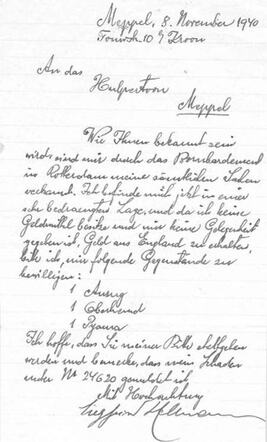 Meppel, 8. November 1940
An das
Hulpcentrum
Meppel
Wie Ihnen bekannt sein
wird, sind mir durch das Bombardement
in Rotterdam meine sämtlichen Sachen
verbrannt. Ich befinde mich jetzt in einer
sehr bedraengten Lage, und da ich keine
Geldmittel besitze und mir keine Gelegenheit
gegeben ist, Geld aus England zu erhalten,
bitte ich, mir folgende Gegenstände zu
bewilligen:
1 Anzug
1 Oberhemd
1 Pyama
Ich hoffe, dass Sie meiner Bitte stattgeben
werden und bemerke, dass mein Schaden
unter Nº 24620 gemeldet ist.
Mit Hochachtung